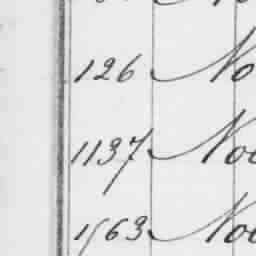 126 No
1137 Noo
1563 Noo